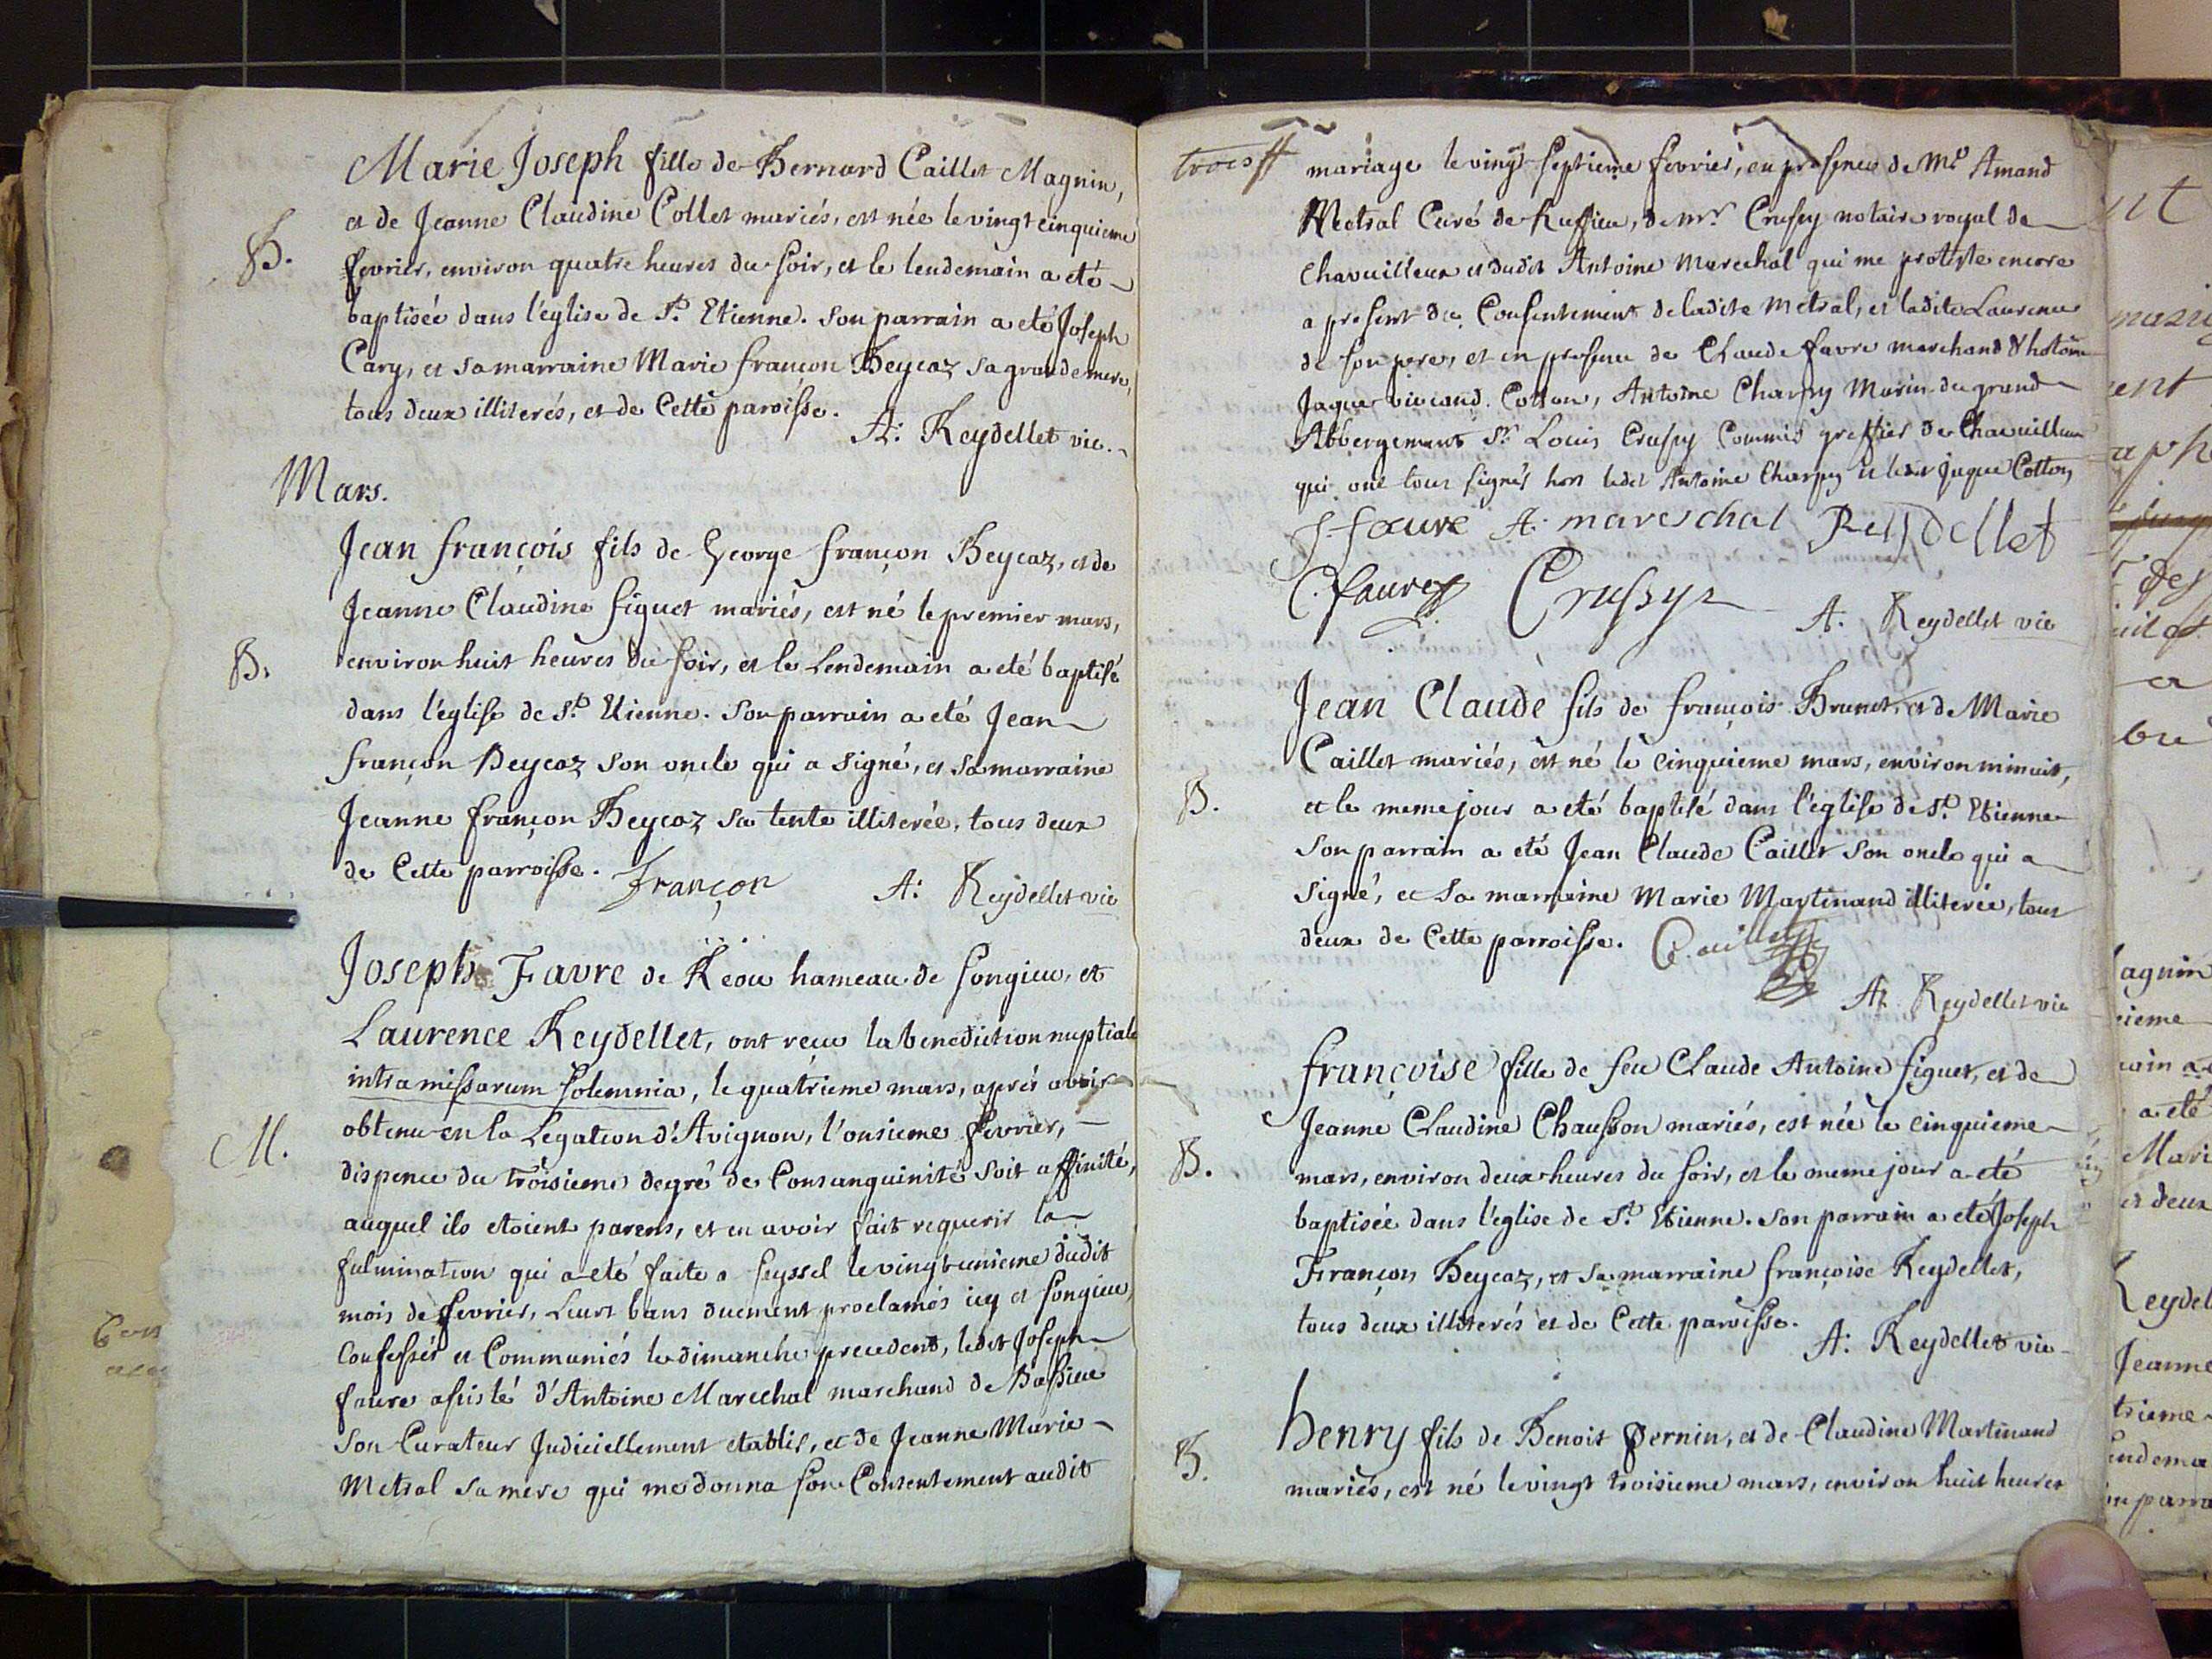 Marie Joseph fille de Bernard Caillet Magnin,
et de Jeanne Claudine Collet mariés, est née le vingt cinquieme
B. fevrier, environ quatre heures du soir, et le lendemain a eté
baptisée dans l'église de St. Etienne. Son parrain a eté Joseph
Cary, et sa marraine Marie françon Beycoz sa grandemere,
tous deux illiterés, et de Cette paroisse.
A: Reydellet vic.
Mars.
Jean françois fils de George françon Beycoz, et de
Jeanne Claudine figuet mariés, est né le premier mars,
B. environ huit heures du soir, et le Lendemain a eté baptisé
dans l'église de St. Etienne. Son parrain a eté Jean
françon Beycoz son oncle qui a signé, et sa marraine
Jeanne françon Beycoz sa tente illiterée, tous deux
de Cette parroisse. Françon A: Reydellet vic
Joseph Favre de Reou hameau de songieu, et
Laurence Reydellet, ont reçu la benediction nuptiale
intra missarum solemnia, le quatrieme mars, aprés avoir
obtenu en la Legation d'Avignon, l'onsieme fevrier,
M. dispence du troisieme degré de Consanguinité soit affinité,
auquel ils etoient parens, et en avoir fait requerir la
fulmination qui a eté faite a seyssel le vingt unieme dudit
mois de fevrier, Leurs bans duement proclamés icy et songieu,
Confessés et Communiés le dimanche precedent, ledit Joseph
favre assisté d'Antoine Marechal marchand de Bassieu
son Curateur Judiciellement etablis, et de Jeanne Marie
Metral sa mere qui me donna son Consentement audit
trois ff mariage le vingt septieme fevrier, en presence de Mre Amand
Mectral Curé de Ruffieu, de mr. Crussy notaire royal de
Chavuilleux et dudit Antoine Marechal qui me proteste encore
a present du Consentement de ladite Metral, et ladite Laurence
de son pere, et en presence de Claude favre marchand d'hotonne
Jaque Cotton, Antoine Charpy Marin du grand
Abbergement Sr. Louis Crussy Commis greffier de Chavuilleux
qui ont tous signés hors ledit Antoine Charpy et ledit Jaque Cotton,
J fauvre A. mareschal Reydellet
C. fauvre Crussy A. Reydellet vic
Jean Claude fils de françois Brunet, et de Marie
Caillet mariés, est né le cinquieme mars, environ minuit,
B. et le meme jour a eté baptisé dans l'église de St. Etienne
Son parrain a eté Jean Claude Caillet son oncle qui a
signé, et sa marraine Marie Martinand illiterée, tous
deux de Cette parroisse. C. aillet
A. Reydellet vic
françoise fille de feu Claude Antoine figuet, et de
Jeanne Claudine Chausson mariés, est née le cinquieme
B. mars, environ deux heures du soir, et le meme jour a eté
baptisée dans l'eglise de St. Etienne. Son parrain a eté Joseph
Françon Beycoz, et sa marraine françoise Reydellet,
tous deux illiterés et de Cette paroisse.
A: Reydellet vic
henry fils de Benoit pernin, et de Claudine Martinand
B. mariés, est né le vingt troisieme mars, environ huit heures